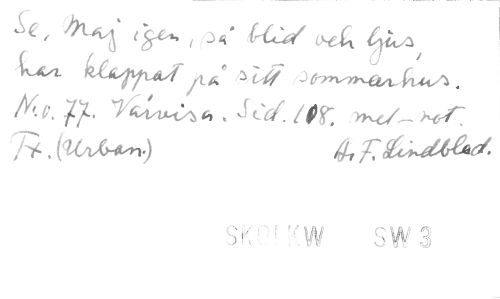 Se, Maj igen, så blid och ljus,
har klappat på sitt sommarhus.
N.o. 77. Vårvisa. Sid. 108. mel-not.
Tx. (Urban.) A. F. Lindblad.
SKOLKW SW 3